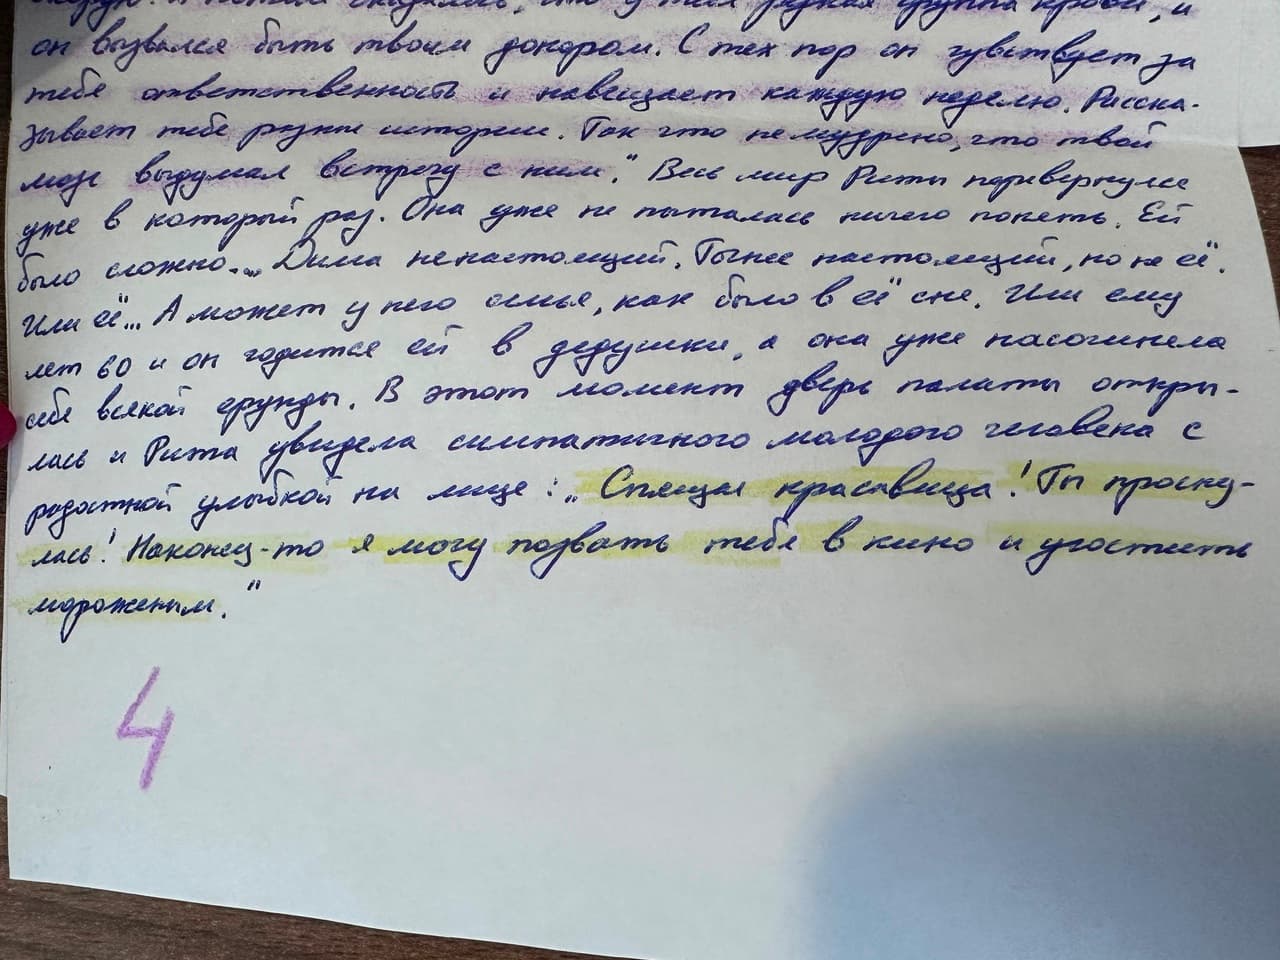 скорую. А потом оказалось, что у тебя редкая группа крови, и
он вызвался быть твоим донором. С тех пор он чувствует за
тебя ответственность и навещает каждую неделю. Расска-
зывает тебе разные истории. Так что немудрено, что твой
мозг выдумал встречу с ним." Весь мир Риты перевернулся
уже в который раз. Она уже не пыталась ничего понять. Ей
было сложно... Дима ненастоящий. Точнее настоящий, но не её.
Или её... А может у него семья, как было в её сне. Или ему
лет 60 и он годится ей в дедушки, а она уже насочинела
себе всякой ерунды. В этот момент дверь палаты откры-
лась и Рита увидела симпатичного молодого человека с
радостной улыбкой на лице: „Спящая красавица! Ты просну-
лась! Наконец-то я могу позвать тебя в кино и угостить
мороженым."
4